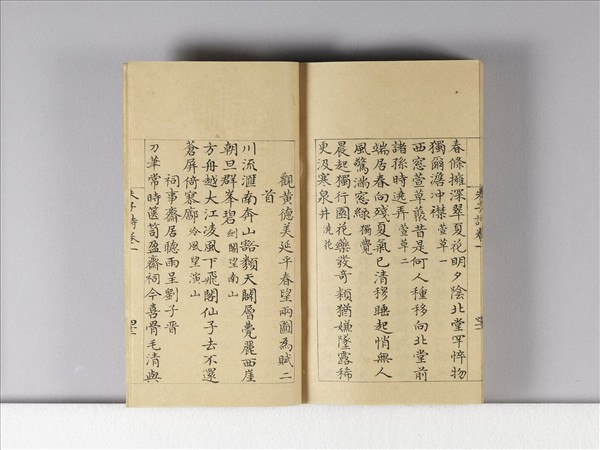 春條擁深翠夏花明夕陰北堂罕悴物
獨爾澹冲襟 萱草一
西窓萱草叢昔是何人種移向北堂前
諸孫時遶弄 萱草二
端居春向殘夏氣已清穆睡起悄無人
風驚滿窓綠 獨覺
晨起獨行園花藥發奇穎猶嫌墜露稀
更汲寒泉井 澆花
觀黃德美延平春望兩圖為賦二
首
川流滙南奔山豁類天闢層甍麗西崖
朝旦群峯碧 劍閣望南山
方舟越大江凌風下飛閣仙子去不還
蒼屏倚寥廓 冷風望演山
祠事齋居聽雨呈劉子晋
刀筆常時篋笥盈齋祠今喜骨毛清與
朱子詩卷一